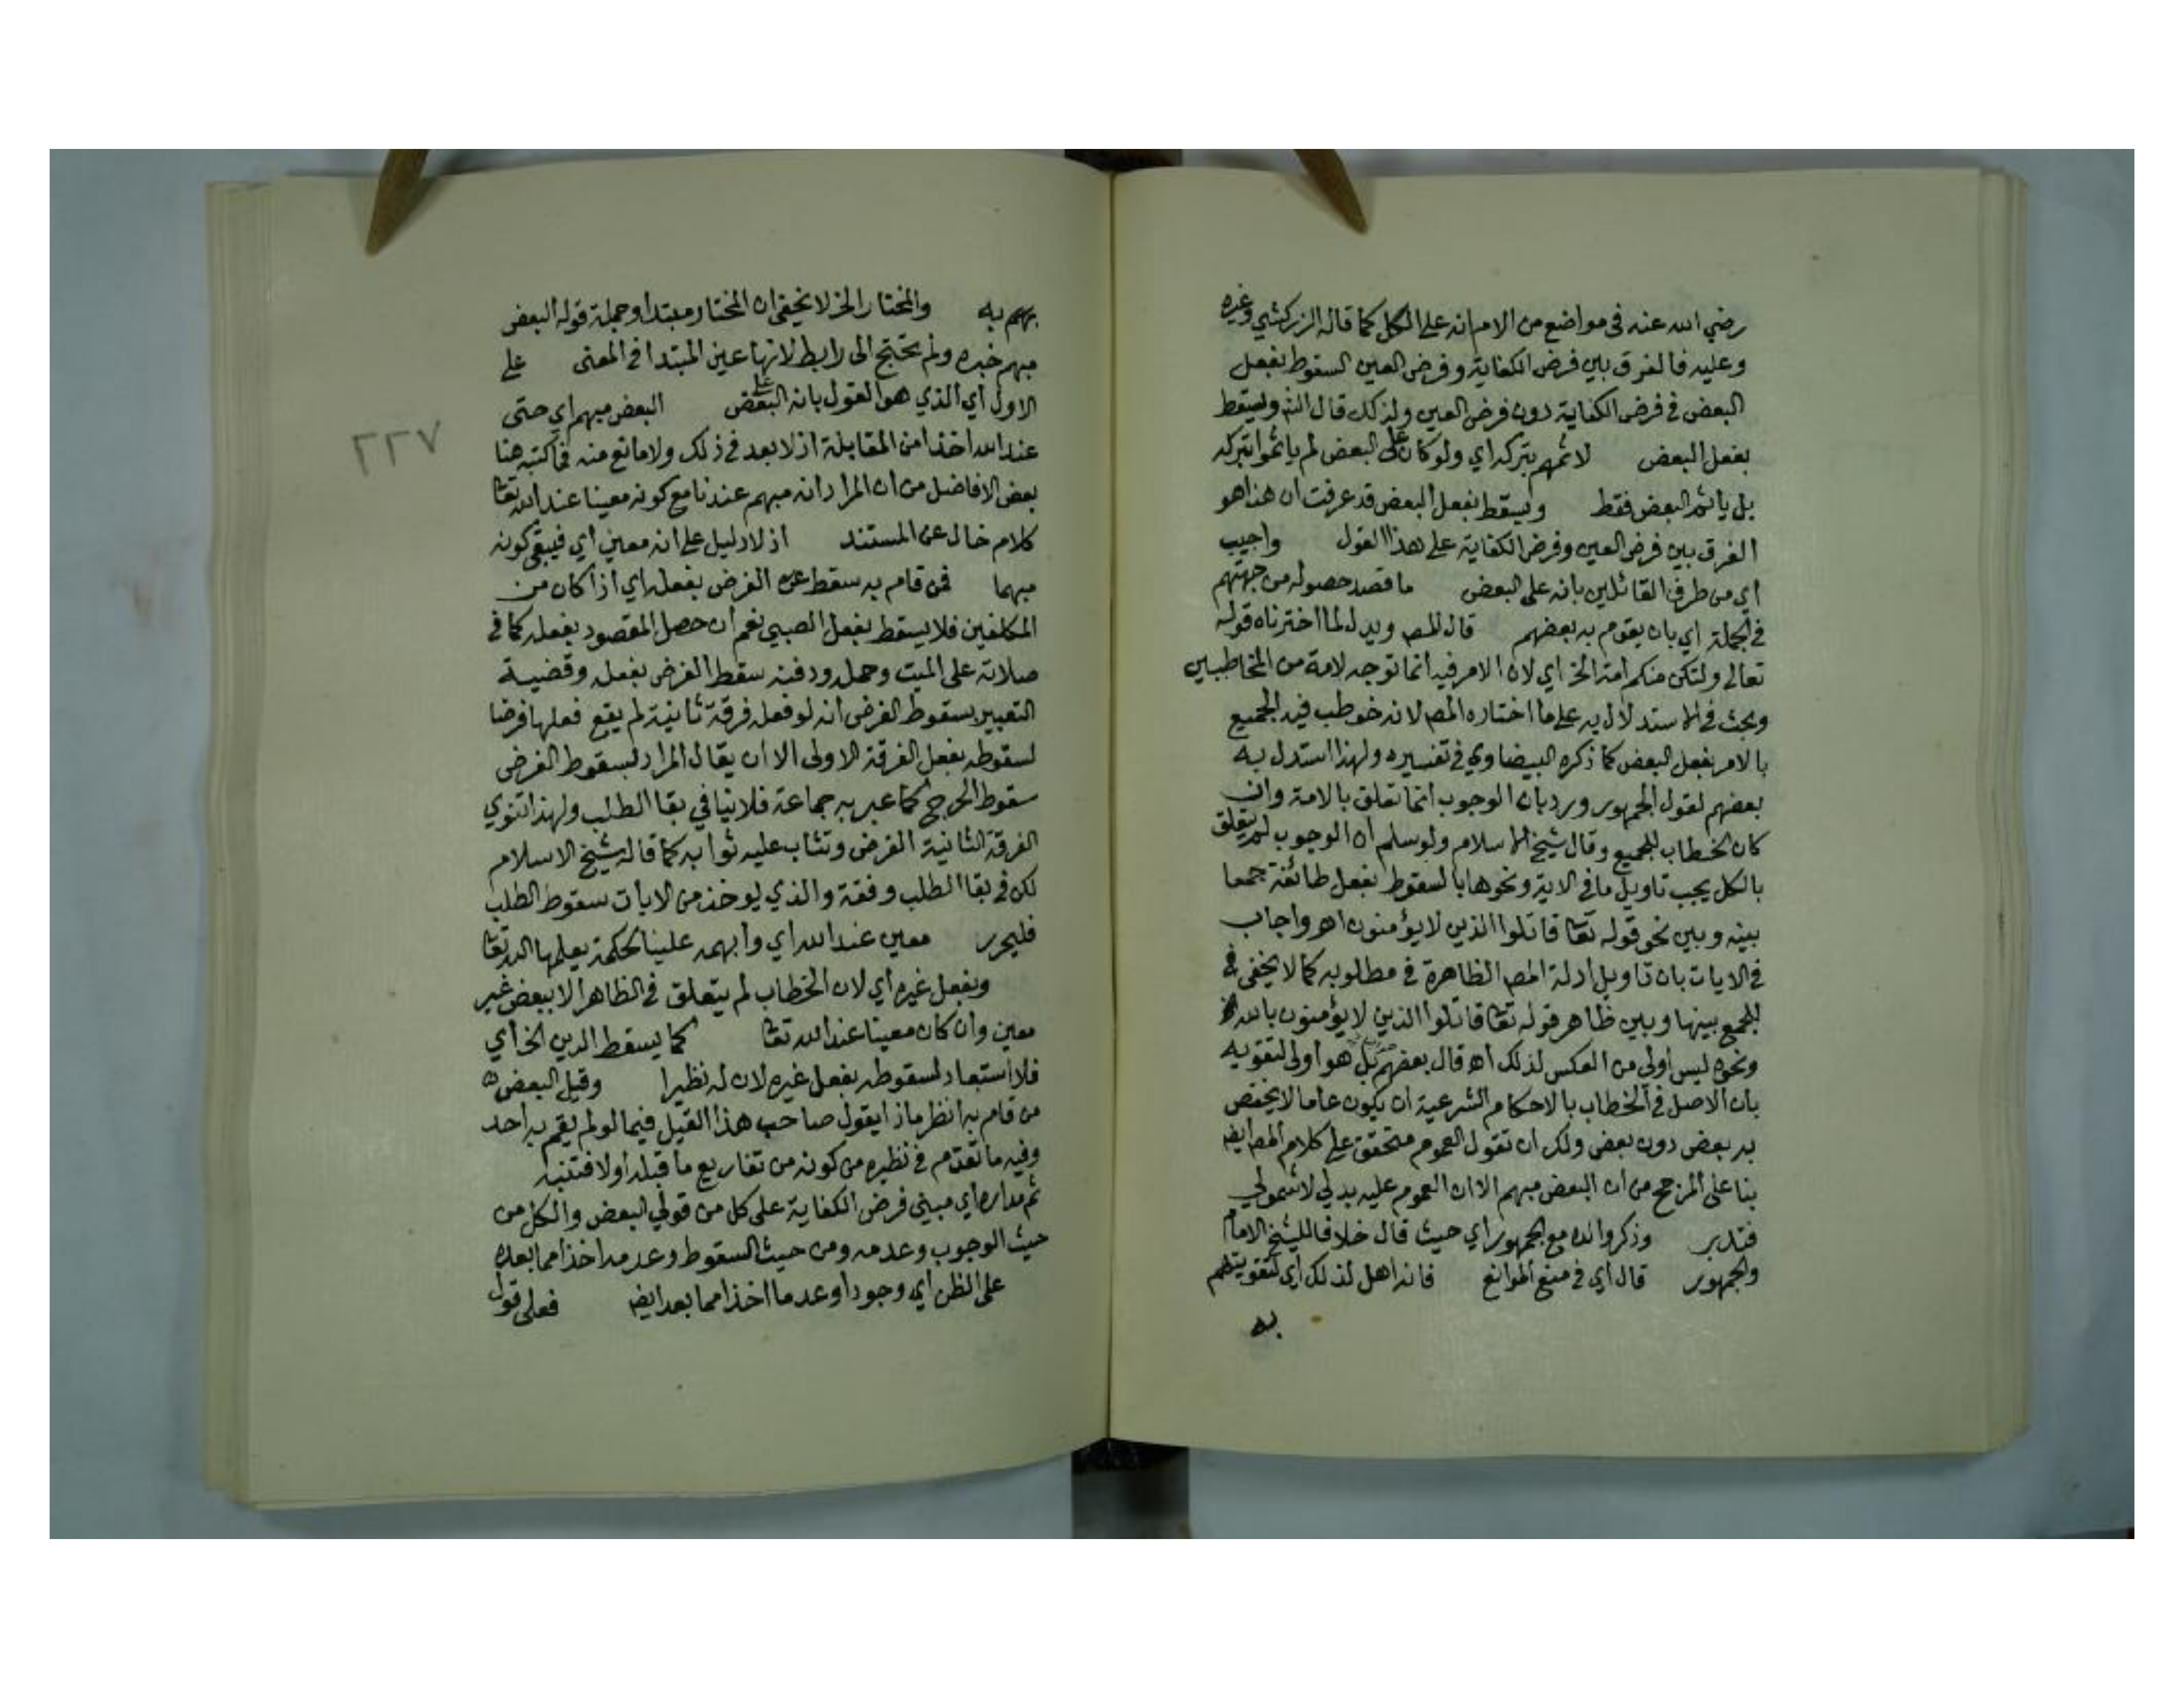 رضي الله عنه في مواضع من الام انه على الكل كما قاله الزركشي وغيره
وعليه فالفرق بين فرض الكفاية وفرض العين السقوط بفعل
البعض في فرض الكفاية دون فرض العين ولذلك قال الش ويسقط
بفعل البعض لاثمهم بتركه اي ولو كان على البعض لم ياثموا بتركه
بل ياثم البعض فقط ويسقط بفعل البعض قد عرفت ان هذا هو
الفرق بين فرض العين وفرض الكفاية على هذا القول واجيب
اي من طرف القائلين بانه على البعض ما قصد حصوله من جهتهم
في الجملة اي بان يقوم به بعضهم قال المص ويدل لما اخترناه قوله
تعالى ولتكن منكم امة الخ اي لان الامر فيه انما توجه لامة من المخاطبين
وبحث في الاستدلال به على ما اختاره المص لانه خوطب فيه الجميع
بالامر بفعل البعض كما ذكره البيضاوي في تفسيره ولهذا استدل به
بعضهم لقول الجمهور ورد بان الوجوب انما تعلق بالامة وان
كان الخطاب للجميع وقال شيخ الاسلام ولو سلم ان الوجوب لم يتعلق
بالكل يجب تاويل ما في الاية ونحوها بالسقوط بفعل طائفة جمعا
بينه وبين نحو قوله تعا قاتلوا الذين لا يؤمنون اهـ واجاب
في الايات بان تاويل ادلة المص الظاهرة في مطلوبه كما لا يخفى في
للجمع بينها وبين ظاهر قوله تعا قاتلوا الذين لا يؤمنون بالله
ونحوه ليس اولى من العكس لذلك اهـ قال بعضهم بل هو اولى لتقويه
بان الاصل في الخطاب بالاحكام الشرعية ان يكون عاما لا يختص
به بعض دون بعض ولك ان تقول العموم متحقق على كلام المص ايض
بنا على المرجح من ان البعض مبهم الا ان العموم عليه بدلي لا شمولي
فتدبر وذكروالده مع الجمهور اي حيث قال خلافا للشيخ الامام
والجمهور قال اي في منع الموانع فانه اهل لذلك اي لتقويتهم
به
بهم به والمختار الخ لا يخفى ان المختار مبتدا وجملة قوله البعض
مبهم خبره ولم يحتج الى رابط لانها عين المبتدا في المعنى على
الاول اي الذي هو القول بانه على البعض البعض مبهم اي حتى
عند الله اخذا من المقابلة اذ لا بعد في ذلك ولا مانع منه فما كتبه هنا
بعض الافاضل من ان المراد انه مبهم عندنا مع كونه معينا عند الله تعا
كلام خال عن المستند اذ لا دليل على انه معين اي فيبقى كونه
مبهما فمن قام به سقط عنه الفرض بفعله اي اذا كان من
المكلفين فلا يسقط بفعل الصبي نعم ان حصل المقصود بفعله كما في
صلاته على الميت وحمله ودفنه سقط الفرض بفعله وقضية
التعبير بسقوط الفرض انه لو فعله فرقة ثانية لم يقع فعلها فرضا
لسقوطه بفعل الفرقة الاولى الا ان يقال المراد لسقوط الفرض
سقوط الحرج كما عبر به جماعة فلا ينافي بقا الطلب ولهذا تنوي
الفرقة الثانية الفرض وتثاب عليه ثوابه كما قاله شيخ الاسلام
لكن في بقا الطلب وقفة والذي يوخذ من الايات سقوط الطلب
فليحرر معين عند الله اي وابهمه علينا لحكمة يعلمها الله تعا
وبفعل غيره اي لان الخطاب لم يتعلق في الظاهر الا ببعض غير
معين وان كان معينا عند الله تعا كما يسقط الدين الخ اي
فلا استبعاد لسقوطه بفعل غيره لان له نظيرا وقيل البعض
من قام به انظر ماذا يقول صاحب هذا القيل فيما لو لم يقم به احد
وفيه ما تقدم في نظيره من كونه من تفاريع ما قبله اولا فتنبه
ثم مداره اي مبنى فرض الكفاية على كل من قولي البعض والكل من
حيث الوجوب وعدمه ومن حيث السقوط وعدمه اخذا مما بعده
على الظن اي وجودا وعدما اخذا مما بعد ايض فعلى قول
٢٢٧